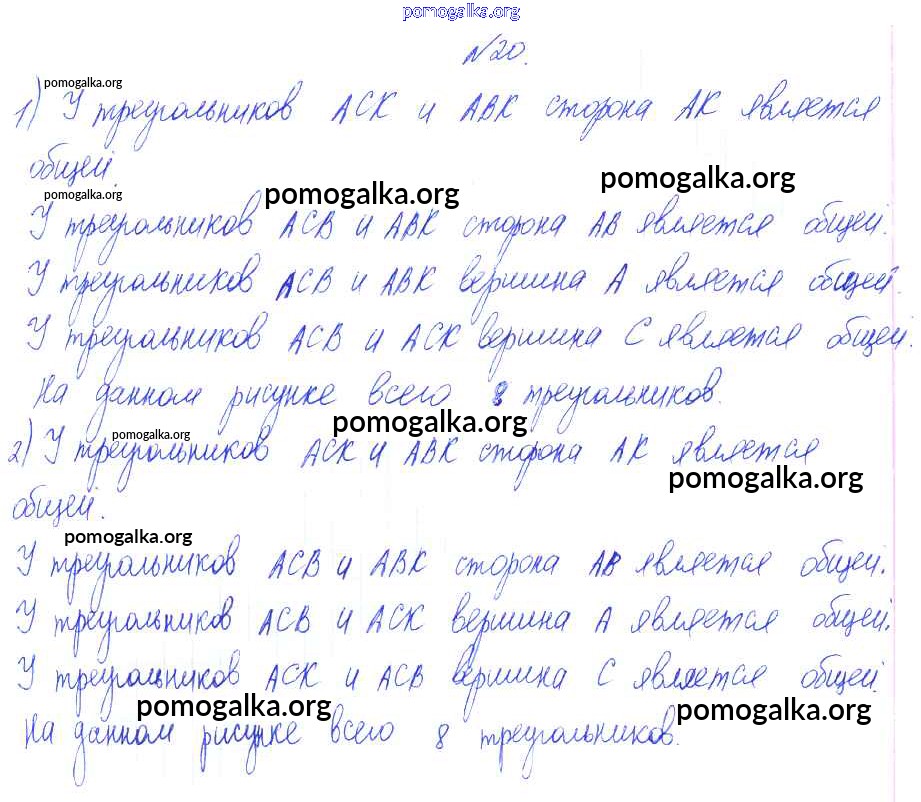 pomogalka.org
№20.
pomogalka.org
1) У треугольников АСК и АВК сторона АК является
общей.
pomogalka.org
pomogalka.org
pomogalka.org
У треугольников АСВ и АВК сторона АВ является общей.
У треугольников АСВ и АВК вершина А является общей.
У треугольников АСВ и АСК вершина С является общей.
На данном рисунке всего 8 треугольников.
pomogalka.org
pomogalka.org
2) У треугольников АСК и АВК сторона АК является
pomogalka.org
общей.
pomogalka.org
У треугольников АСВ и АВК сторона АВ является общей.
У треугольников АСВ и АСК вершина А является общей.
У треугольников АСК и АСВ вершина С является общей.
pomogalka.org
pomogalka.org
На данном рисунке всего 8 треугольников.